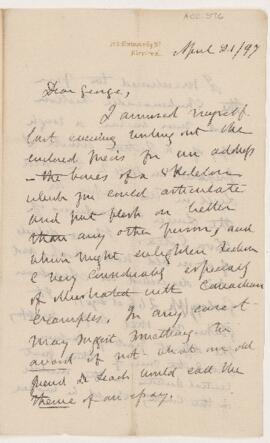 ACC. 576
April 21/97
Dear George,
I amused myself
last evening writing out the
enclosed precis for an address
– the bones of a skeleton
which you could articulate
and put flesh on better
than any other person, and
which might enlighten
very considerably especially
if illustrated with Canadian
examples. In any case it
may assist
if not what an old
friend Dr Leach would call the
theme of an essay.